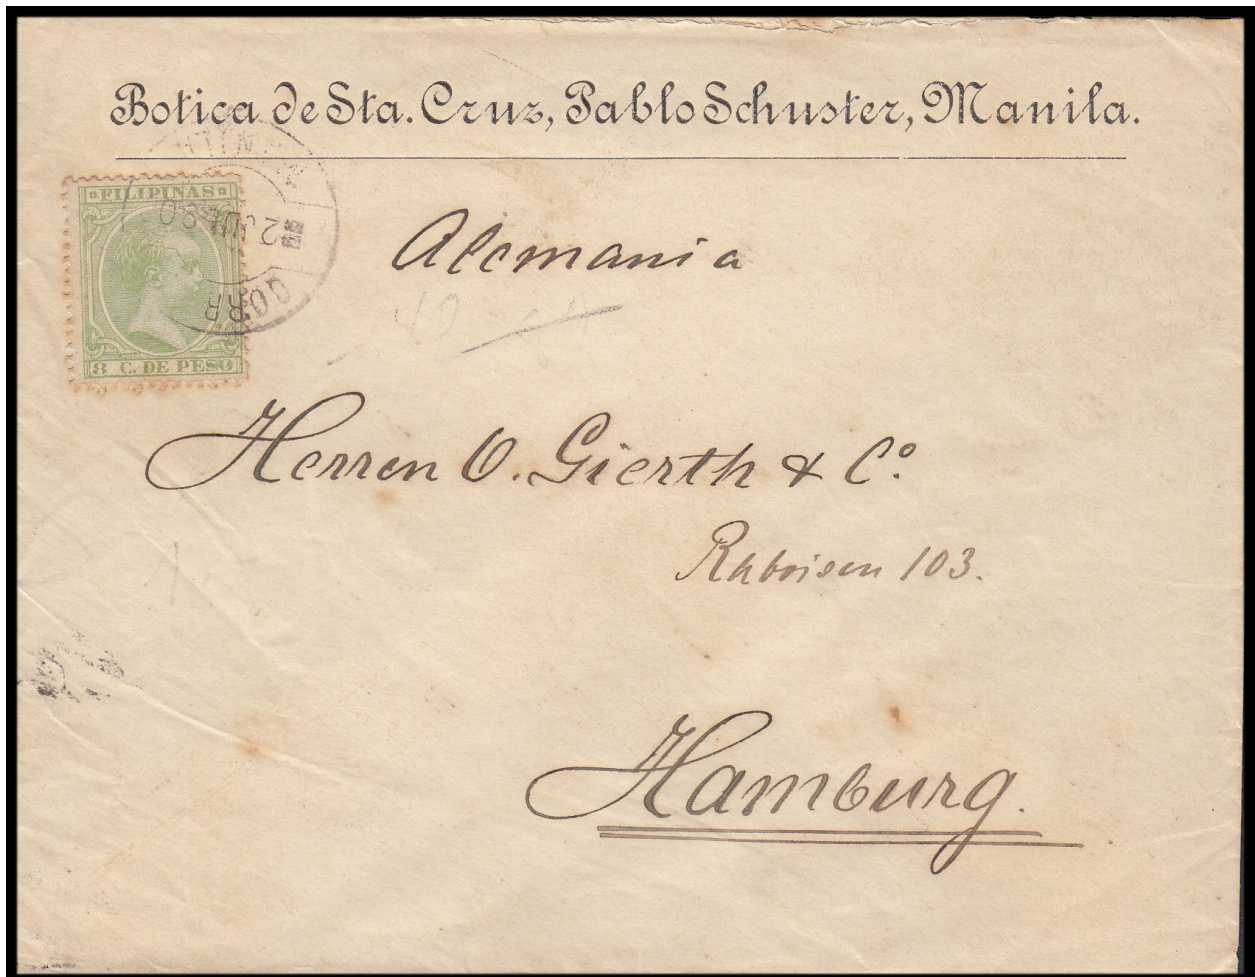 Botica de Sta. Cruz, Pablo Schuster, Manila.
FILIPINAS
8 C. DE PESO
2 JUN 90
CORR
Alemania
Herren O. Gierth & Co.
Raboisen 103.
Hamburg.